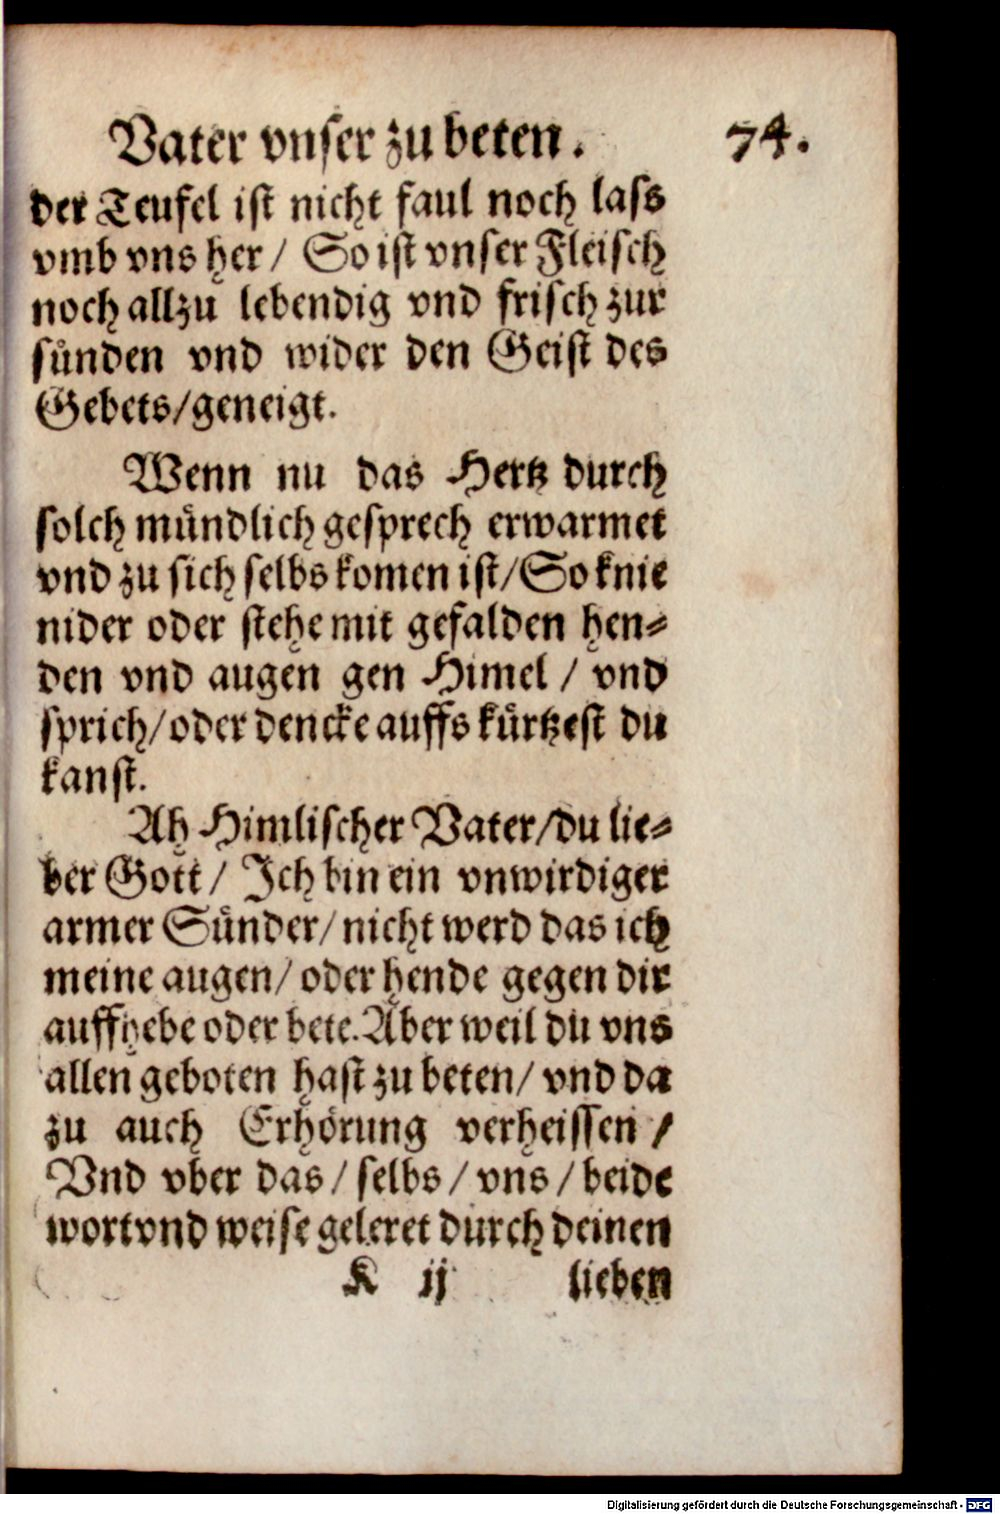 Vater vnser zu beten. 74.
der Teufel ist nicht faul noch lass
vmb vns her / So ist vnser Fleisch
noch allzu lebendig vnd frisch zur
sünden vnd wider den Geist des
Gebets/geneigt.
Wenn nu das Hertz durch
solch mündlich gesprech erwarmet
vnd zu sich selbs komen ist/So knie
nider oder stehe mit gefalden hen⸗
den vnd augen gen Himel / vnd
sprich/oder dencke auffs kürtzest du
kanst.
Ah Himlischer Vater/du lie⸗
ber Gott / Ich bin ein vnwirdiger
armer Sünder/nicht werd das ich
meine augen/oder hende gegen dir
auffhebe oder bete. Aber weil du vns
allen geboten hast zu beten/vnd da
zu auch Erhörung verheissen /
Vnd vber das / selbs / vns / beide
wort vnd weise geleret durch deinen
K ij lieben
Digitalisierung gefördert durch die Deutsche Forschungsgemeinschaft - DFG